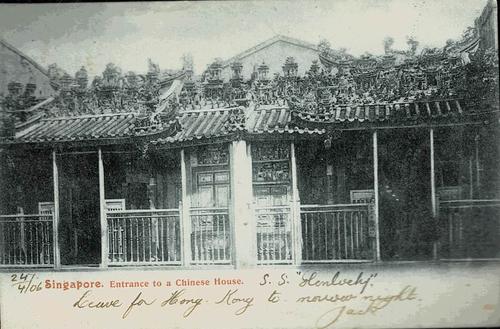 24/
4/06 Singapore. Entrance to a Chinese House. S. S. "Glenlochy"
Leave for Hong-Kong to morrow night.
Jack